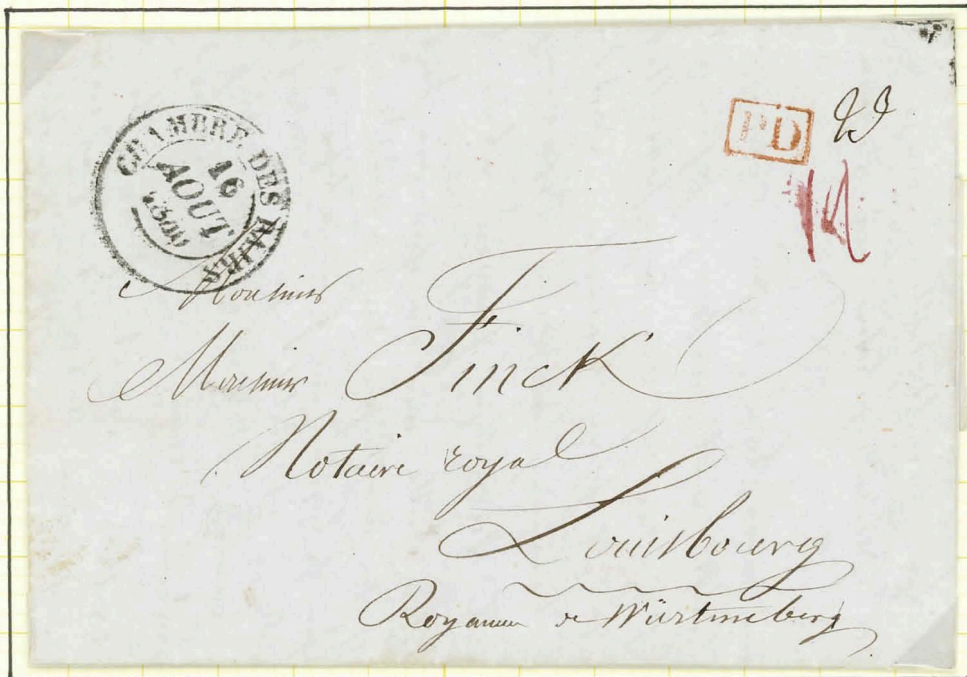 CHAMBRE DES PAIRS
16
AOUT
PD
Monsieur
Monsieur Finck
Notaire royal
Louisbourg
Royaume de Würtmeberg